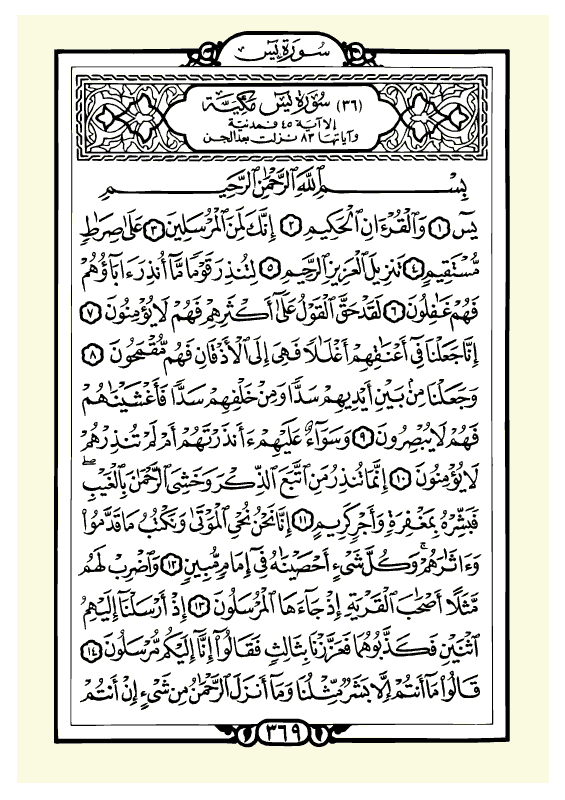 سورة يس
(٣٦) سورة يس مكية
إلا آية ٤٥ فمدنية
وآياتها ٨٣ نزلت بعد الجن
بِسْمِ ٱللَّهِ ٱلرَّحْمَٰنِ ٱلرَّحِيمِ
يسٓ ١ وَٱلْقُرْءَانِ ٱلْحَكِيمِ ٢ إِنَّكَ لَمِنَ ٱلْمُرْسَلِينَ ٣ عَلَىٰ صِرَٰطٍ
مُّسْتَقِيمٍ ٤ تَنزِيلَ ٱلْعَزِيزِ ٱلرَّحِيمِ ٥ لِتُنذِرَ قَوْمًا مَّآ أُنذِرَ ءَابَآؤُهُمْ
فَهُمْ غَٰفِلُونَ ٦ لَقَدْ حَقَّ ٱلْقَوْلُ عَلَىٰٓ أَكْثَرِهِمْ فَهُمْ لَا يُؤْمِنُونَ ٧
إِنَّا جَعَلْنَا فِىٓ أَعْنَٰقِهِمْ أَغْلَٰلًا فَهِىَ إِلَى ٱلْأَذْقَانِ فَهُم مُّقْمَحُونَ ٨
وَجَعَلْنَا مِنۢ بَيْنِ أَيْدِيهِمْ سَدًّا وَمِنْ خَلْفِهِمْ سَدًّا فَأَغْشَيْنَٰهُمْ
فَهُمْ لَا يُبْصِرُونَ ٩ وَسَوَآءٌ عَلَيْهِمْ ءَأَنذَرْتَهُمْ أَمْ لَمْ تُنذِرْهُمْ
لَا يُؤْمِنُونَ ١٠ إِنَّمَا تُنذِرُ مَنِ ٱتَّبَعَ ٱلذِّكْرَ وَخَشِىَ ٱلرَّحْمَٰنَ بِٱلْغَيْبِ ۖ
فَبَشِّرْهُ بِمَغْفِرَةٍ وَأَجْرٍ كَرِيمٍ ١١ إِنَّا نَحْنُ نُحْىِ ٱلْمَوْتَىٰ وَنَكْتُبُ مَا قَدَّمُوا۟
وَءَاثَٰرَهُمْ ۚ وَكُلَّ شَىْءٍ أَحْصَيْنَٰهُ فِىٓ إِمَامٍ مُّبِينٍ ١٢ وَٱضْرِبْ لَهُم
مَّثَلًا أَصْحَٰبَ ٱلْقَرْيَةِ إِذْ جَآءَهَا ٱلْمُرْسَلُونَ ١٣ إِذْ أَرْسَلْنَآ إِلَيْهِمُ
ٱثْنَيْنِ فَكَذَّبُوهُمَا فَعَزَّزْنَا بِثَالِثٍ فَقَالُوٓا۟ إِنَّآ إِلَيْكُم مُّرْسَلُونَ ١٤
قَالُوا۟ مَآ أَنتُمْ إِلَّا بَشَرٌ مِّثْلُنَا وَمَآ أَنزَلَ ٱلرَّحْمَٰنُ مِن شَىْءٍ إِنْ أَنتُمْ
٣٦٩